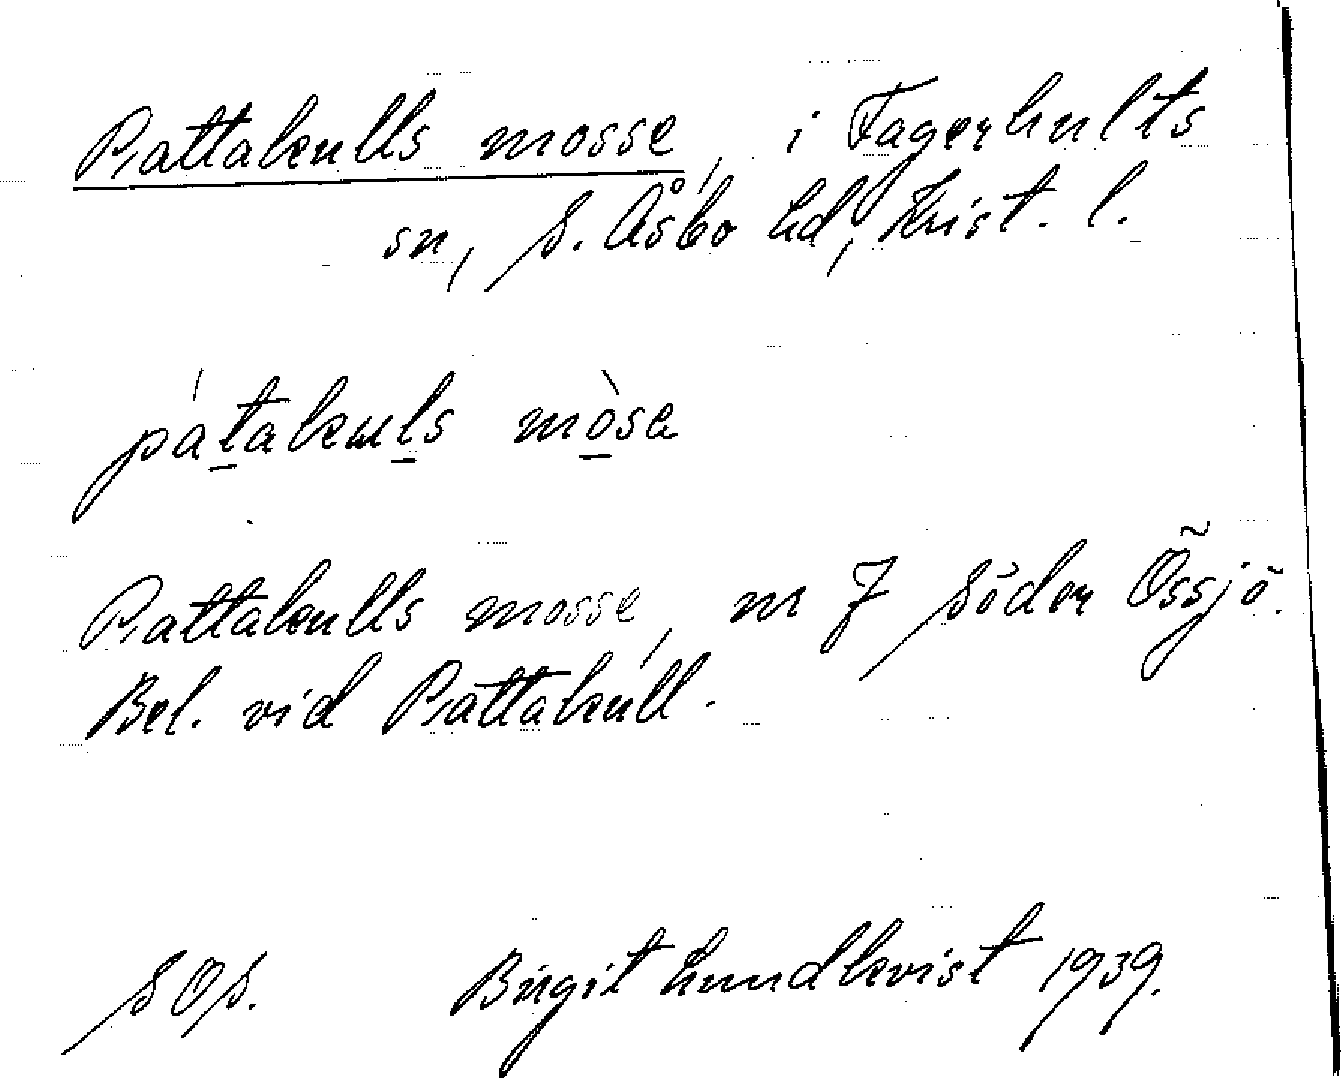 Pattakulls mosse, i Fagerhults
sn, S. Åsbo hd, Krist. l.
pátakuls mòsa
Pattakulls mosse, m J Söder Össjö.
Bel. vid Pattakull.
SOS. Birgit Lundkvist 1939.